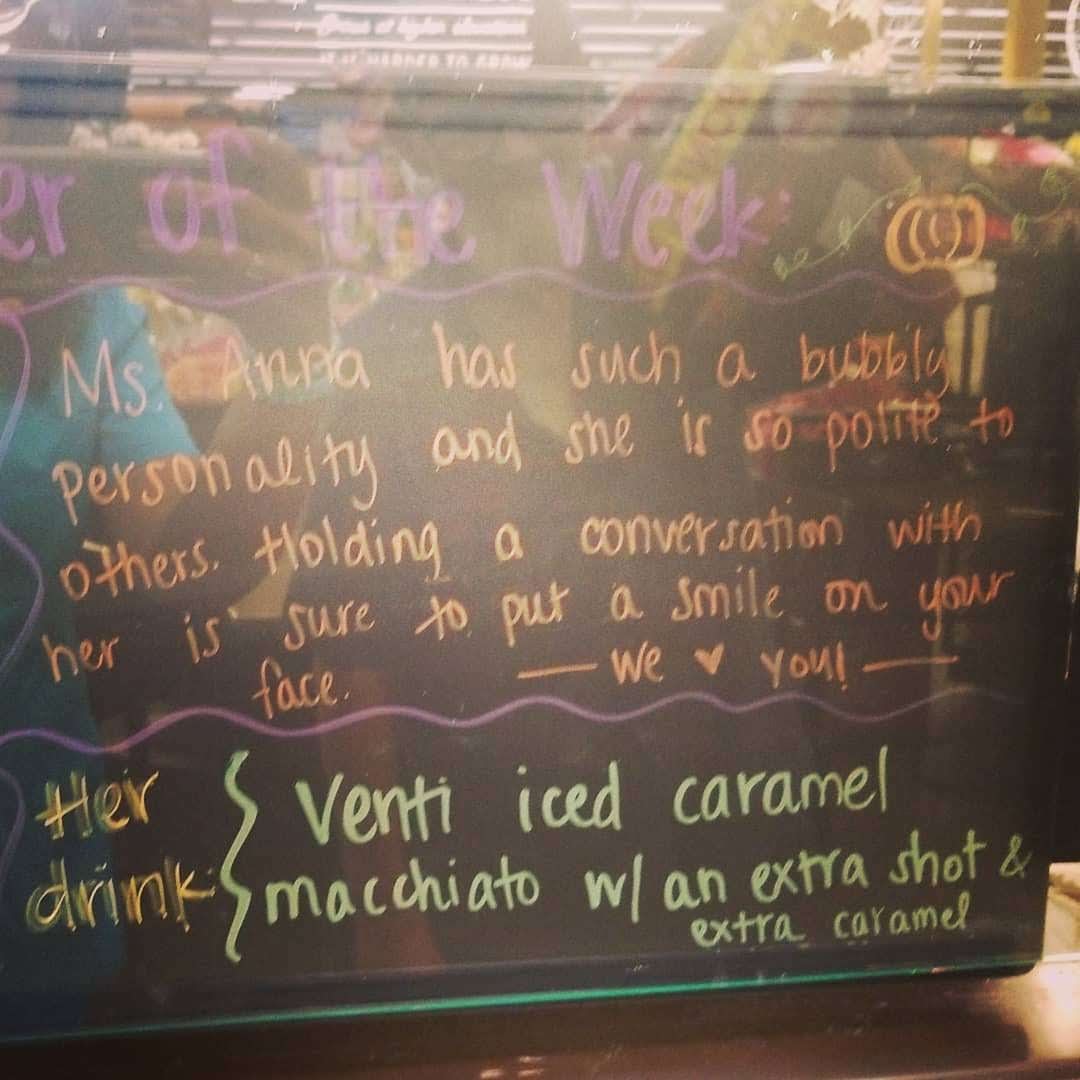 er of the Week:
Ms. Anna has such a bubbly
personality and she is so polite to
others. Holding a conversation with
her is sure to put a smile on your
face. — We ♥ you! —
Her
drink:
Venti iced caramel
macchiato w/ an extra shot &
extra caramel